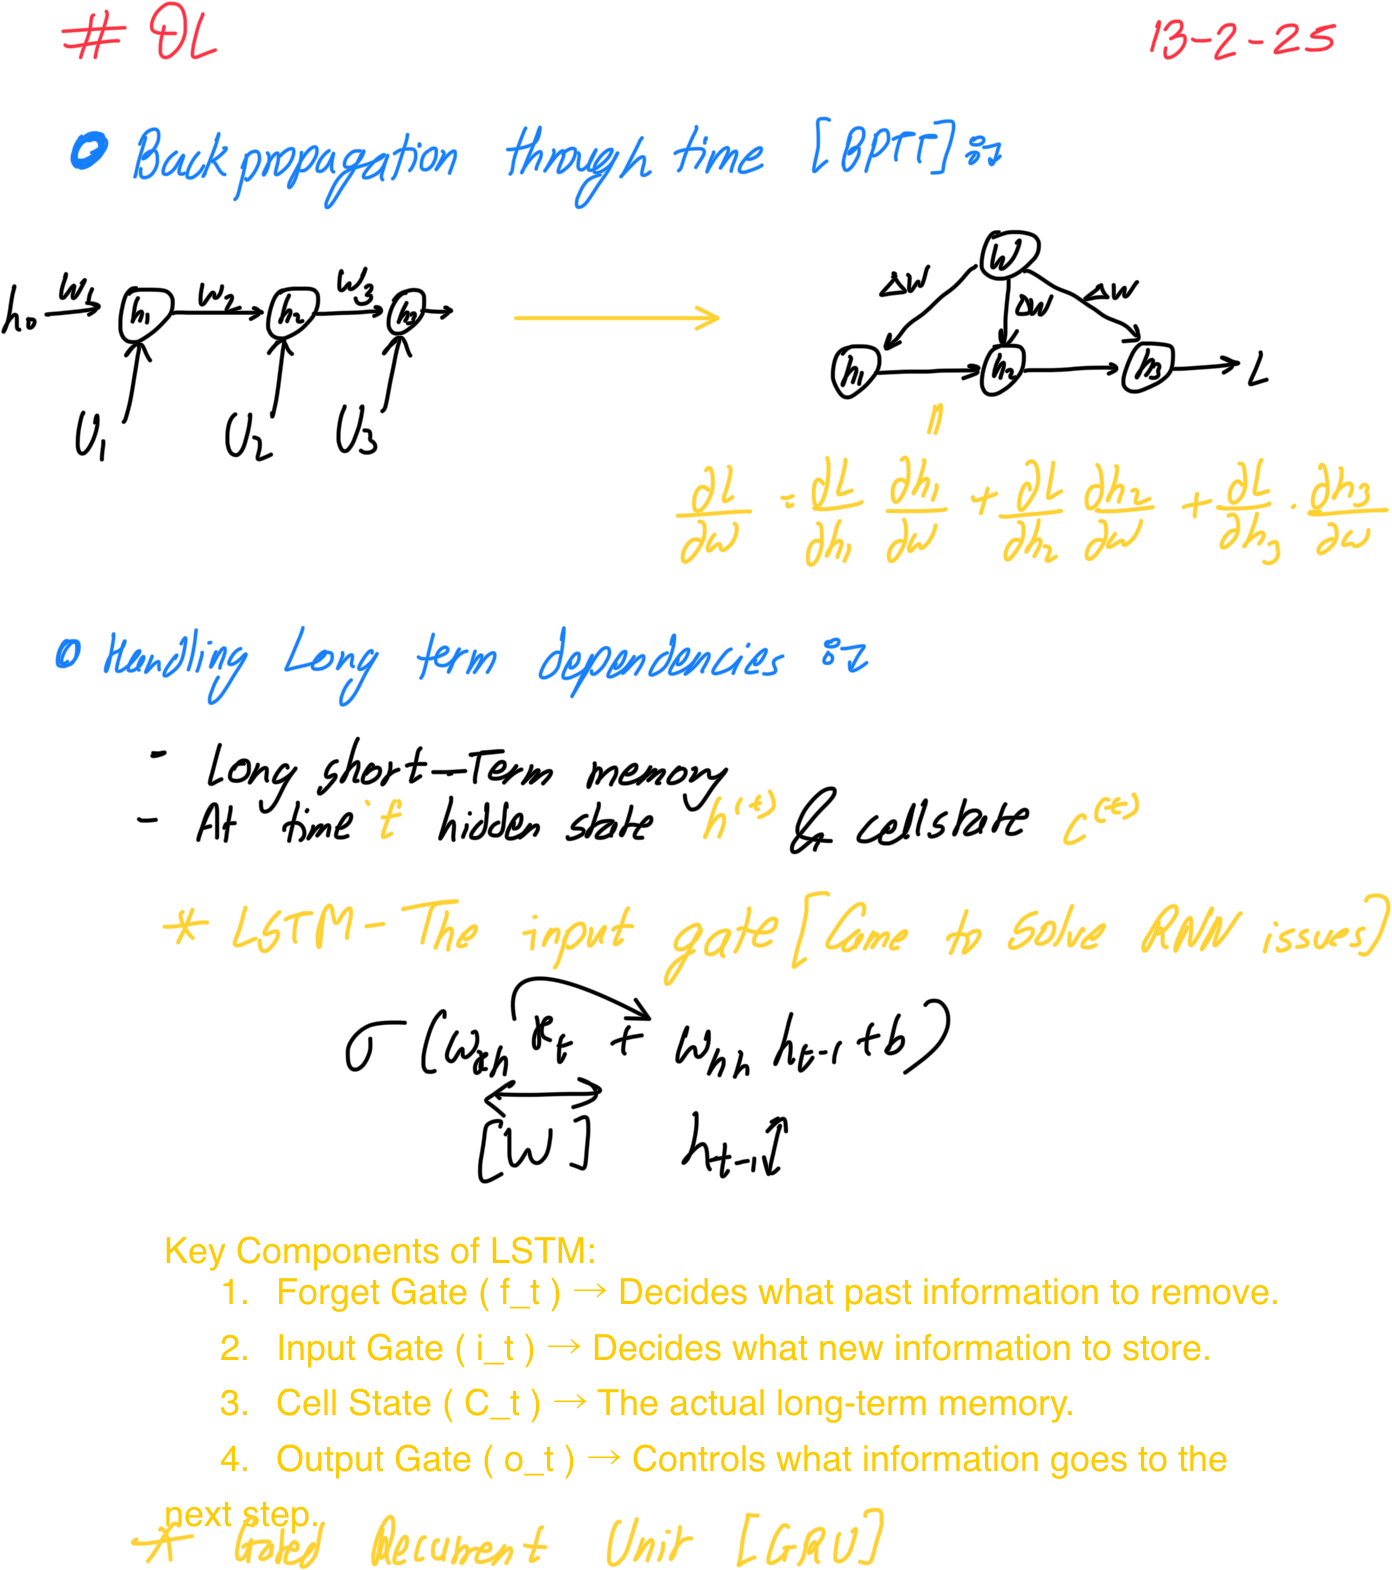 # DL 13-2-25
Backpropagation through time [BPTT] :-
h₀ W₁ h₁ W₂ h₂ W₃ h₃
U₁ U₂ U₃
W
ΔW ΔW ΔW
h₁ h₂ h₃ L
=
∂L/∂w = ∂L/∂h₁ ∂h₁/∂w + ∂L/∂h₂ ∂h₂/∂w + ∂L/∂h₃ · ∂h₃/∂w
Handling Long term dependencies :-
- Long short-Term memory
- At time 't' hidden state h⁽ᵗ⁾ & cell state c⁽ᵗ⁾
* LSTM - The input gate [Came to solve RNN issues]
σ(w_xh x_t + w_hh h_t-1 + b)
[W] h_t-1
Key Components of LSTM:
1. Forget Gate ( f_t ) → Decides what past information to remove.
2. Input Gate ( i_t ) → Decides what new information to store.
3. Cell State ( C_t ) → The actual long-term memory.
4. Output Gate ( o_t ) → Controls what information goes to the
next step.
* Gated Recurrent Unit [GRU]